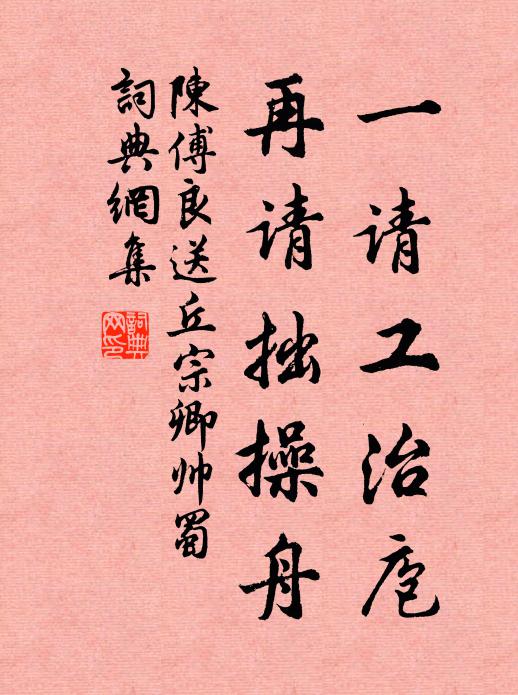 一请工治庖
再请拙操舟
陳傅良送丘宗卿帅蜀
詞典網集
詞典网印